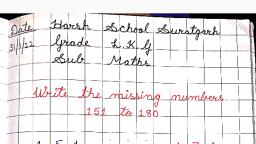 Date Harsh School Suratgarh
31/1/22 Grade L.K.G
Sub Maths
Write the missing numbers
151 to 180